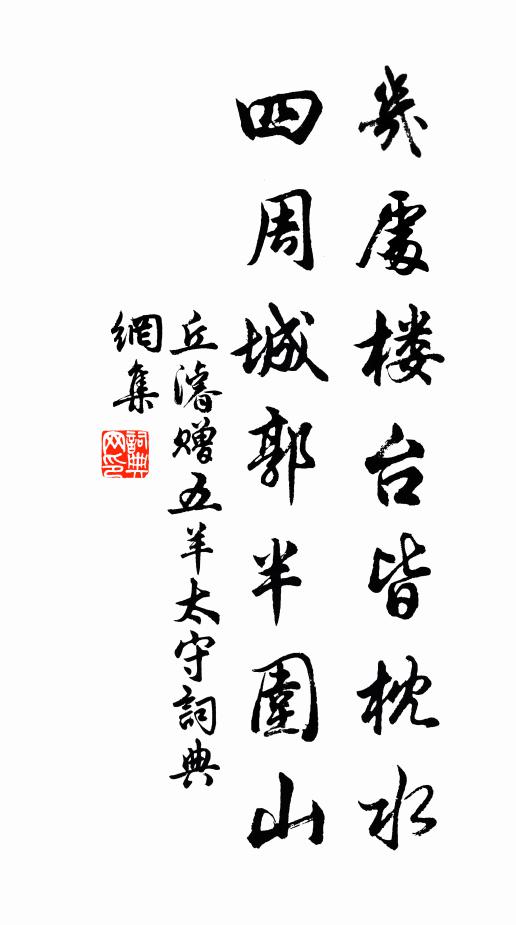 幾處楼台皆枕水
四周城郭半圍山
丘濬赠五羊太守詞典
網集
詞典
网印